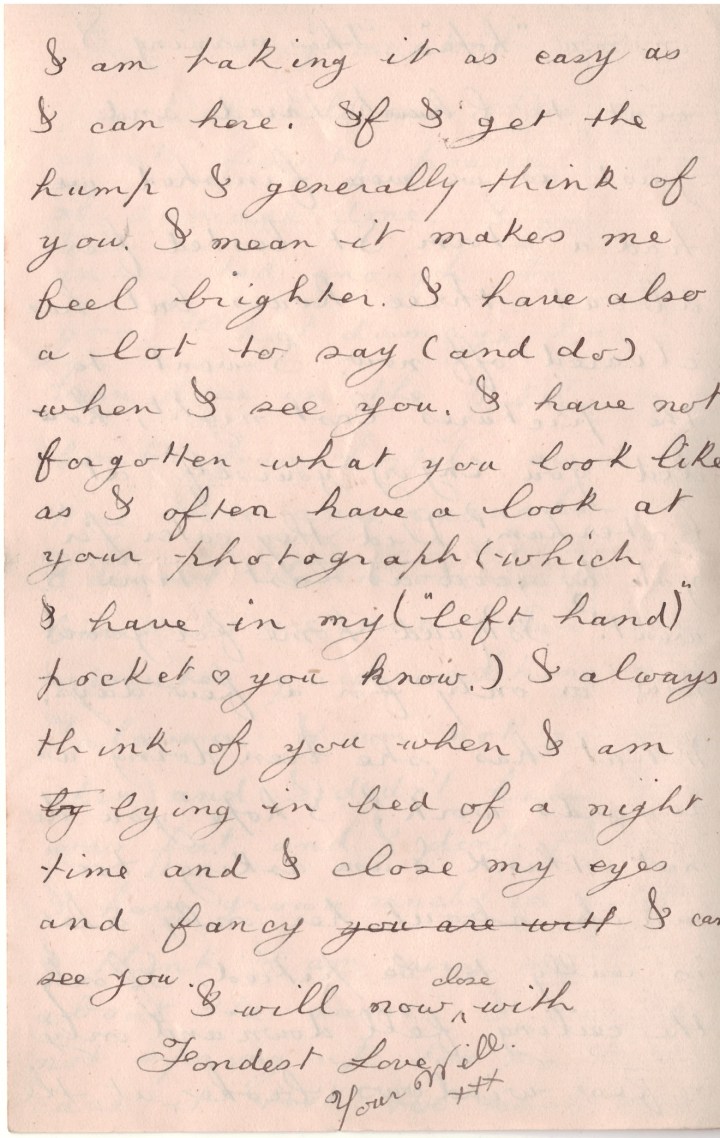 I am taking it as easy as
I can here. If I get the
hump I generally think of
you. I mean it makes me
feel brighter. I have also
a lot to say (and do)
when I see you. I have not
forgotten what you look like
as I often have a look at
your photograph (which
I have in my ("left hand)"
pocket ♡ you know.) I always
think of you when I am
by lying in bed of a night
time and I close my eyes
and fancy you are with I can
see you.
I will now close with
Fondest Love
Your Will.
+++